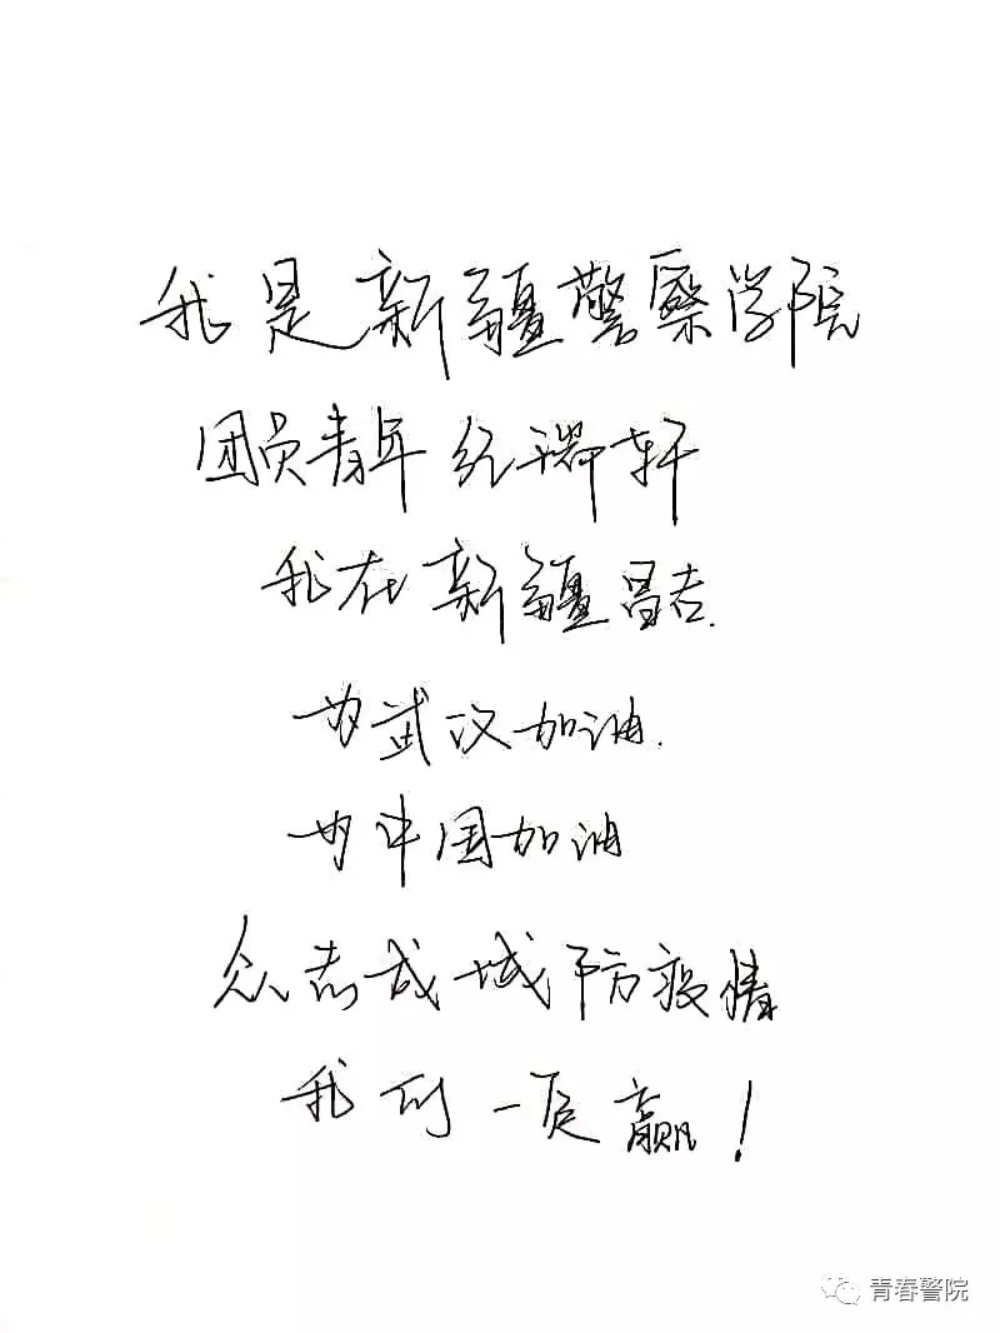 我是新疆警察学院
团员青年纪瑞轩
我在新疆昌吉.
为武汉加油.
为中国加油
众志成城防疫情
我们一定赢!
青春警院